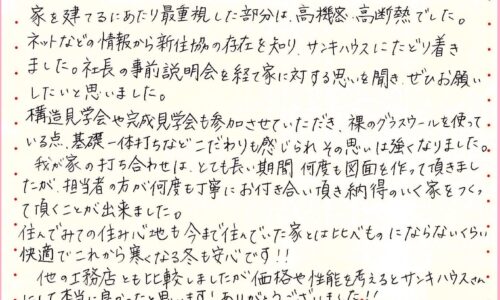 家を建てるにあたり最重視した部分は、高機密・高断熱でした。
ネットなどの情報から新住協の存在を知り、サンキハウスにたどり着き
ました。社長の事前説明会を経て家に対する思いを聞き、ぜひお願い
したいと思いました。
構造見学会や完成見学会も参加させていただき、裸のグラスウールを使って
いる点、基礎一体打ちなどこだわりも感じられ その思いは強くなりました。
我が家の打ち合わせは、とても長い期間 何度も図面を作って頂きまし
たが、担当者の方が何度も丁寧にお付き合い頂き納得のいく家をつくっ
て頂くことが出来ました。
住んでみての住み心地も今まで住んでいた家とは比べものにならないくらい
快適でこれから寒くなる冬も安心です!!
他の工務店とも比較しましたが価格や性能を考えるとサンキハウスさん
にして本当に良かったと思います!ありがとうございました!!